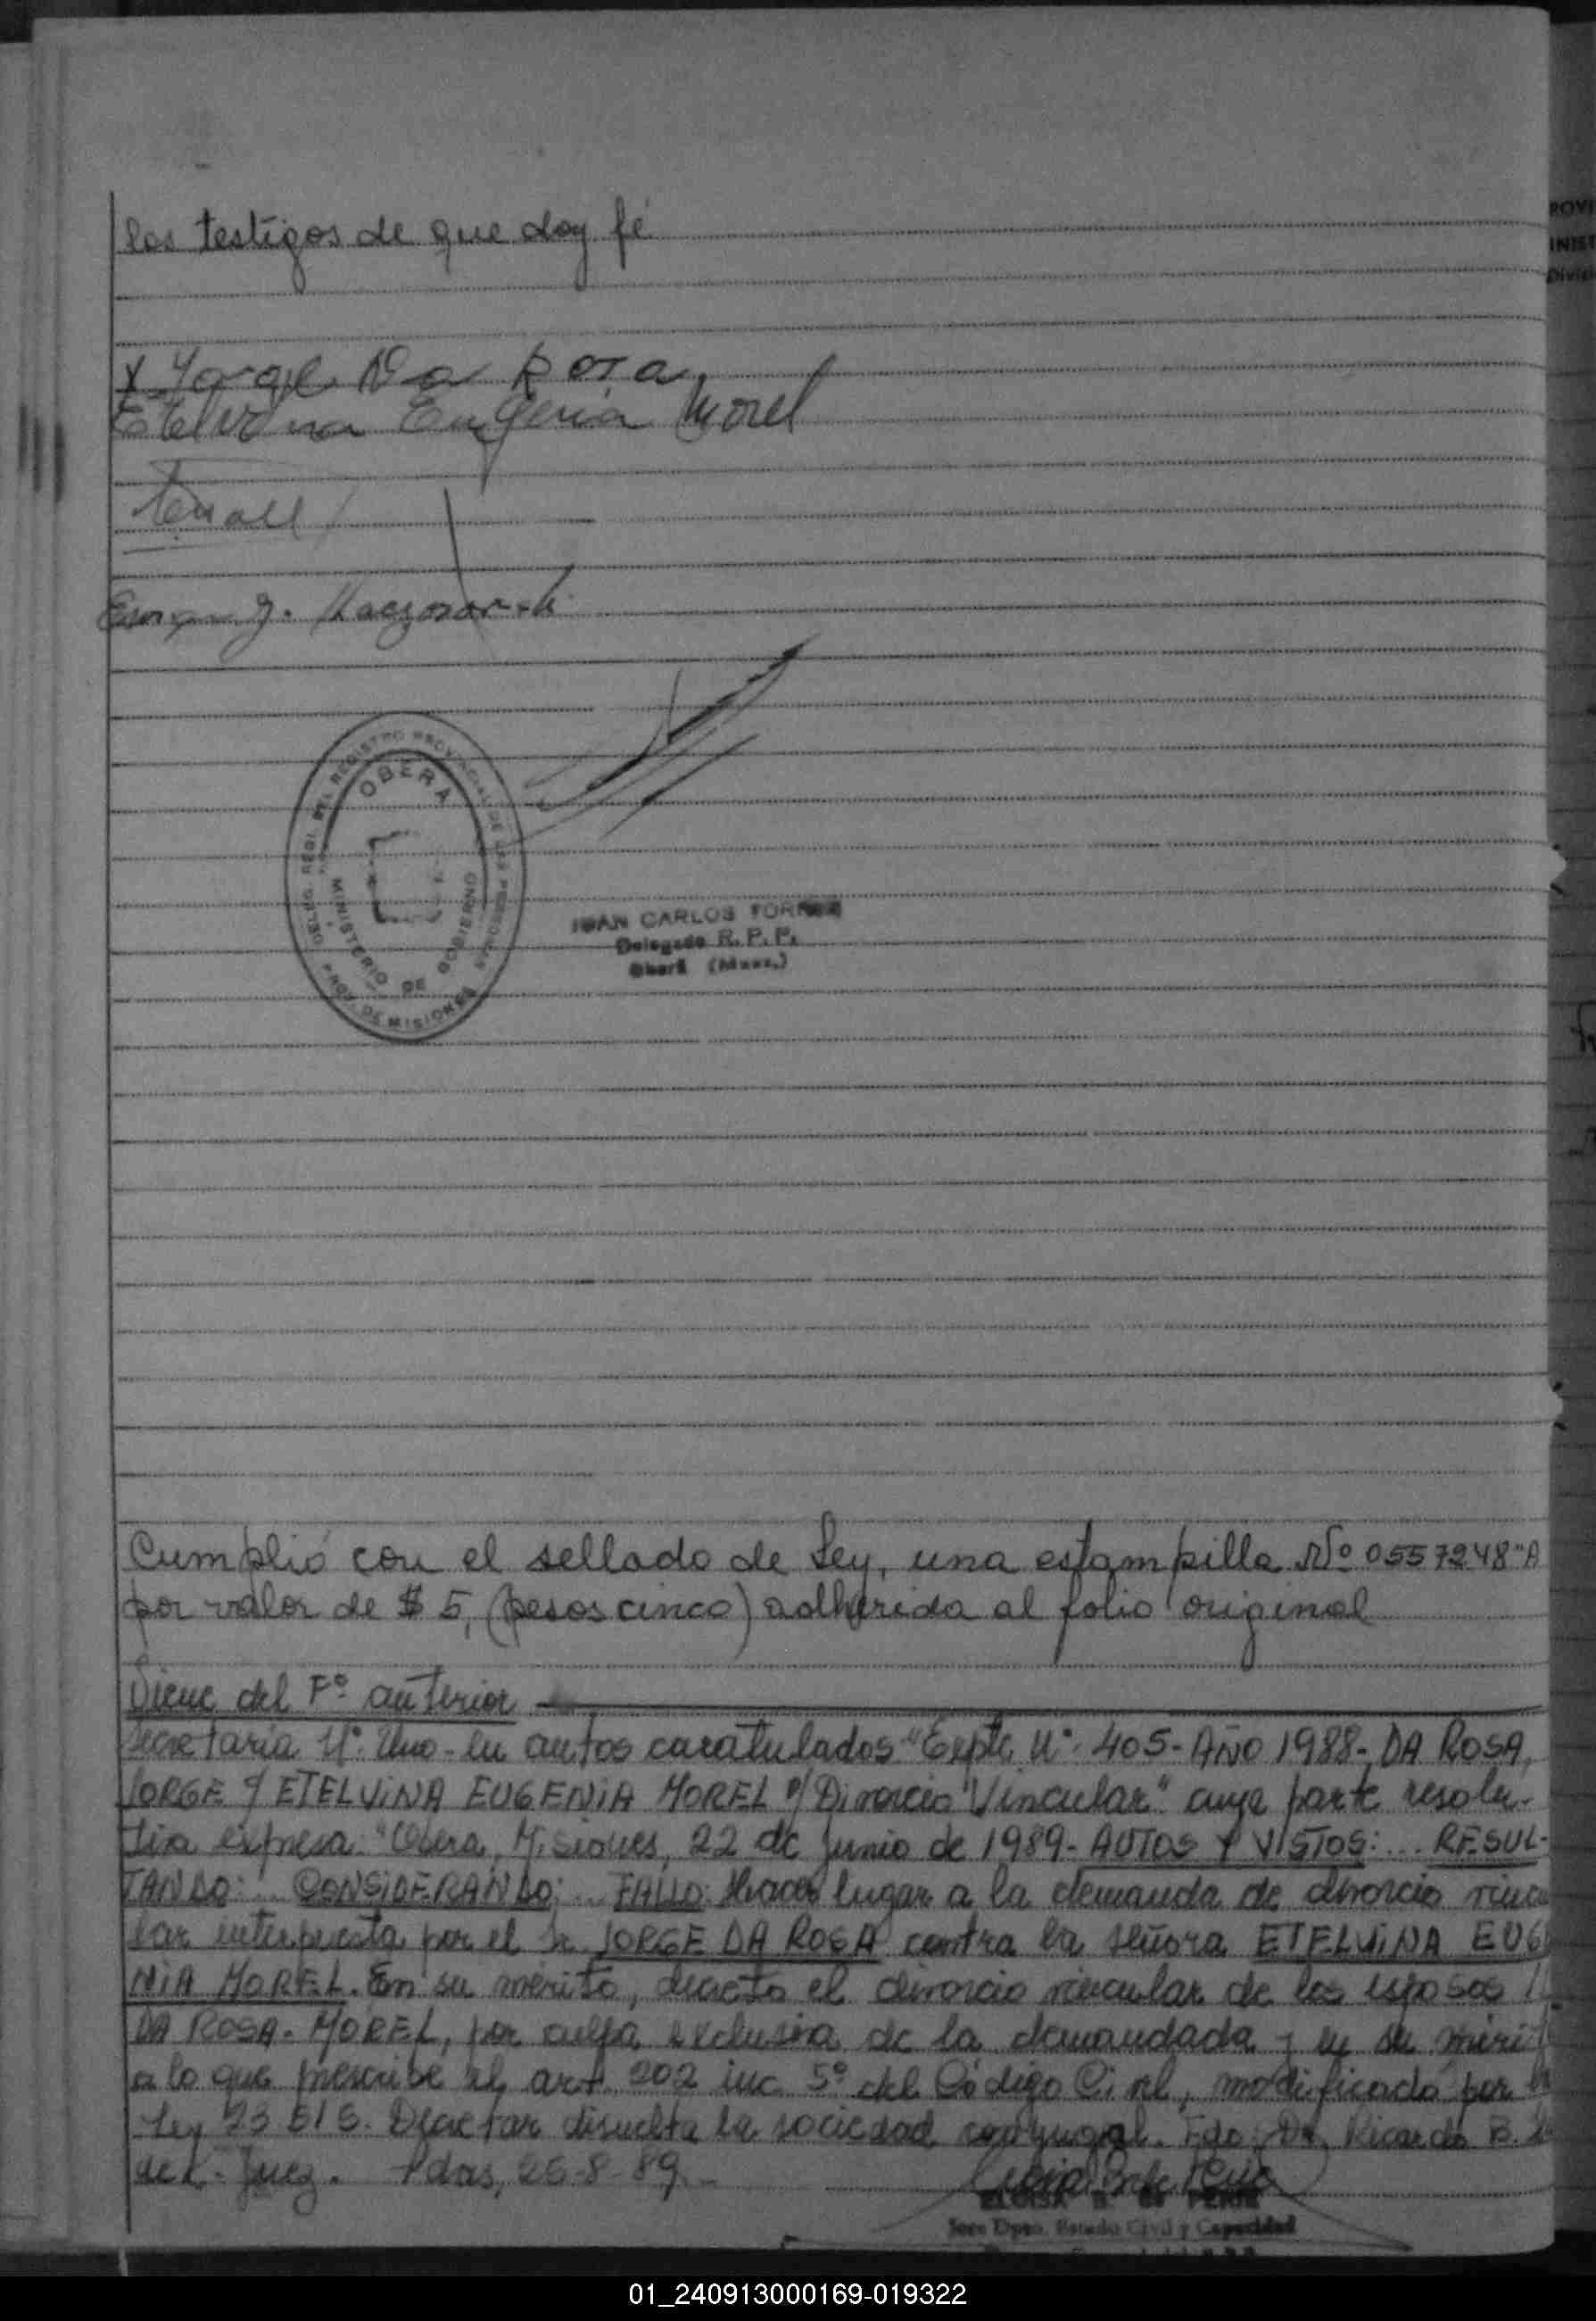 los testigos de que doy fé
x Jorge Da Rosa
Etelvina Eugenia Morel
DELEG. REGI. DEL REGISTRO PROVINCIAL DE LAS PERSONAS
OBERA
MINISTERIO DE GOBIERNO
PROV. DE MISIONES
CARLOS TORRES
Delegado R. P. P.
Oberá (Mnes.)
Cumplió con el sellado de Ley, una estampilla Nº 0557248"A
por valor de $ 5, (pesos cinco) adherida al folio original
Viene del Fº anterior
Secretaria Nº Uno - en autos caratulados "Expte. Nº 405- AÑO 1988- DA ROSA,
JORGE c/ ETELVINA EUGENIA MOREL s/ Divorcio Vincular" cuya parte resolu-
tiva expresa: "Obera, Misiones, 22 de Junio de 1989- AUTOS Y VISTOS: ... RESUL-
TANDO: ... CONSIDERANDO: ... FALLO: Hacer lugar a la demanda de divorcio vincu
lar interpuesta por el Sr. JORGE DA ROSA contra la señora ETELVINA EUGE
NIA MOREL. En su mérito, decreto el divorcio vincular de los esposos
DA ROSA - MOREL, por culpa exclusiva de la demandada y en su mérit
a lo que prescribe el art. 202 inc. 5º del Código Civil, modificado por la
Ley 23.515. Decretar disuelta la sociedad conyugal. Fdo. Dr. Ricardo B.
Juez. Pdas, 25-8-89
ELOISA B. de
Jefe Dpto. Estado Civil y Capacidad
01_240913000169-019322